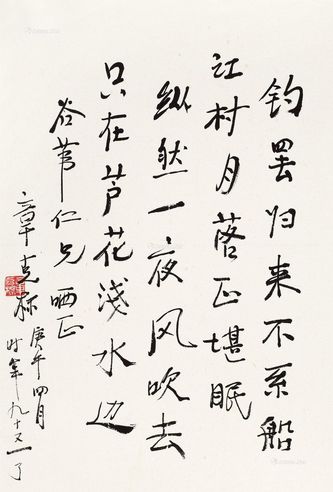 钓罢归来不系船
江村月落正堪眠
纵然一夜风吹去
只在芦花淺水边
谷苇仁兄晒正
章克标
庚午四月
时年九十又一了